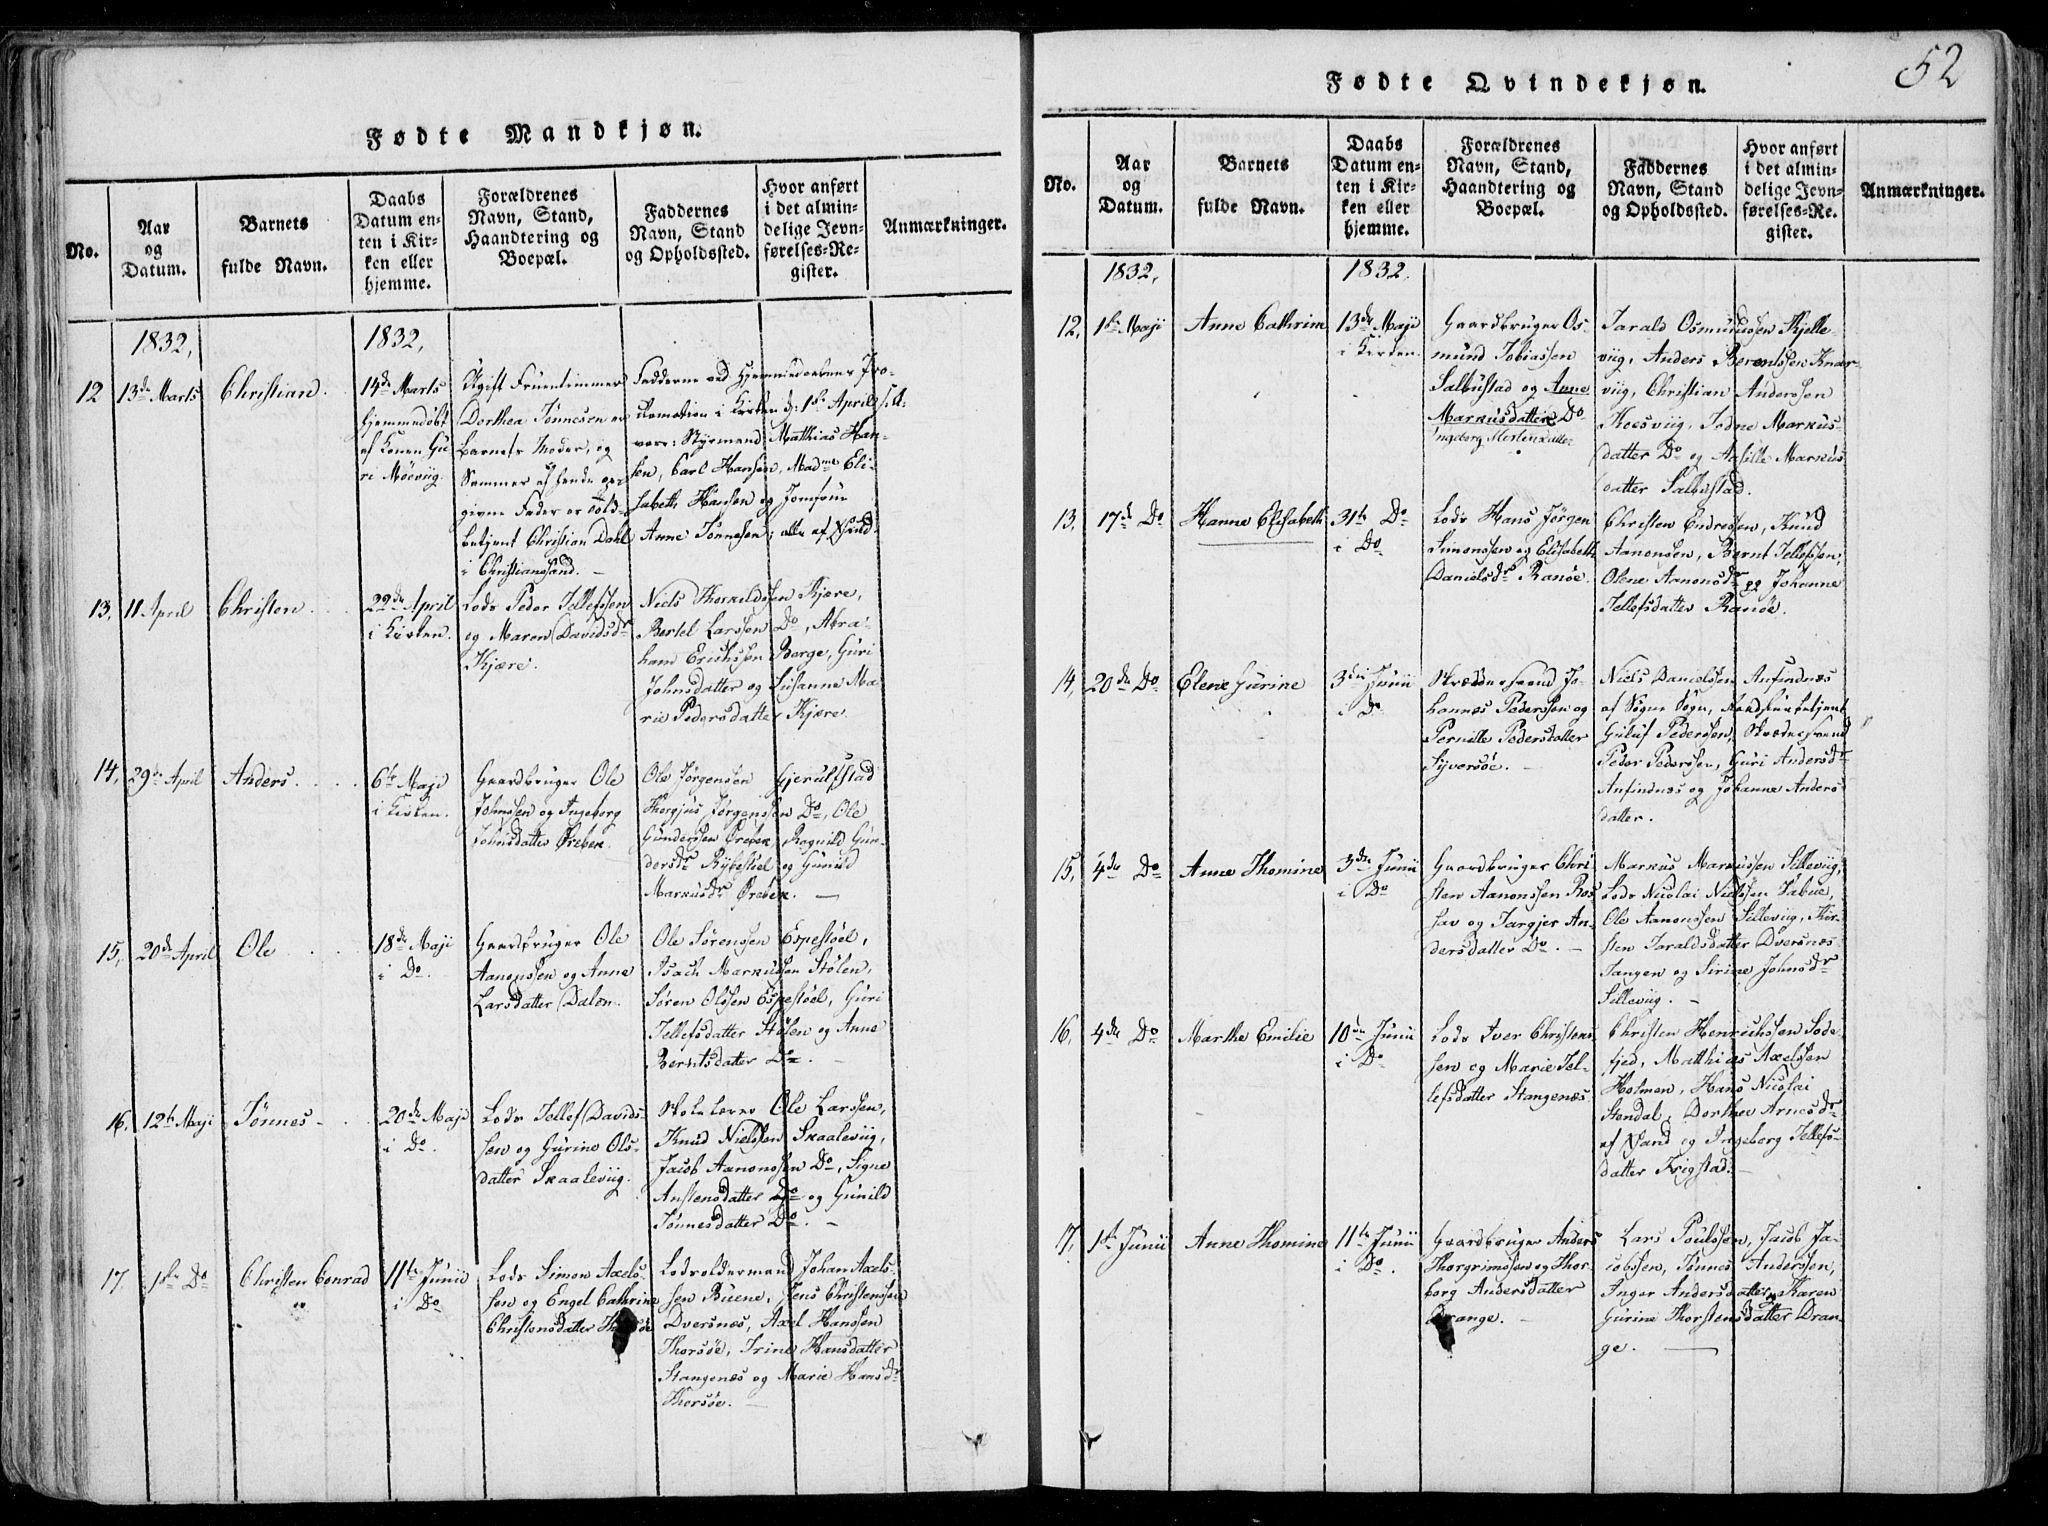 Fødte Mandkjøn.
No.
Aar
og
Datum.
Barnets
fulde Navn.
Daabs
Datum en-
ten i Kir-
ken eller
hjemme.
Forældrenes
Navn, Stand,
Haandtering og
Boepæl.
Faddernes
Navn, Stand
og Opholdssted.
Hvor anført
i det almin-
delige Jevn-
førelses-Re-
gister.
Anmærkninger.
1832,
1832,
12
13de Marts
Christian
14de Marts
hjemmedøbt
af Konen Gu
ri Møevig.
Ugift Fruentimmer
Dorthea Tønnesen er
Barnets Moder, og
Sammes af hende op-
givne Fader er Told-
betjent Christian Dahl
i Christianssand. —
Fadderne ved Hjemmedaabens Pro-
clamation i Kirken d: 1ste April
vare: Styrmand Matthias Han-
sen, Carl Hansen, Madme Eli-
sabeth Hansen og Jomfrue
Anne Tønnesen; alle af
13,
11 April
Christen
22de April
i Kirken.
Lods Peder Tellefssen
og Maren Davidsdr
Kjære.
Niels Thorkildssen Kjære,
Bertel Larssen Do, Abra-
ham Erichssen Borge, Guri
Johnsdatter og Susanne Ma-
rie Pedersdatter Kjære.
14,
29de April
Anders
6te Maji
i Kirken.
Gaardbruger Ole
Johnssen og Ingeborg
Johnsdatter Ørebek.
Ole Jørgensen Gjerulfstad
Thorgjus Jørgenssen Do, Ole
Gunderssen Ørebek, Ragnild Gun-
dersdr Rybestøel og Gunild
Markusdr Ørebek. —
15,
20de April
Ole
18de Maji
i Do.
Gaardbruger Ole
Aanonssen og Anne
Larsdatter Dalen.
Ole Sørenssen Espestøel,
Isach Markussen Stølen,
Søren Olssen Espestøel, Guri
Tellefsdatter Stølen og Anne
Berntsdatter Do. —
16,
12te Maji
Tønnes
20de Maji
i Do.
Lods Tellef Davids-
sen og Gurine Ols-
datter Skaalevig.
Skolelærer Ole Larssen,
Knud Nielssen Skaalevig,
Jacob Aanonssen Do, Signe
Anstensdatter Do og Gunild
Tønnesdatter Do. —
17.
1ste Do
Christen Conrad
11te Junii
i Do
Lods Simon Axels-
sen og Engel Cathrine
Christensdatter
Lodsoldermand Johan Axels-
sen Buene, Jens Christenssen
Dversnes, Axel Hanssen
Thorsøe, Trine Hansdatter
Stangenæs og Marie Hansdr
Thorsøe. —
52
Fødte Qvindekjøn.
No.
Aar
og
Datum.
Barnets
fulde Navn.
Daabs
Datum en-
ten i Kir-
ken eller
hjemme.
Forældrenes
Navn, Stand,
Haandtering og
Boepæl.
Faddernes
Navn, Stand
og Opholdssted.
Hvor anført
i det almin-
delige Jevn-
førelses-Re-
gister.
Anmærkninger.
1832,
1832.
12,
1ste Maji
Anne Cathrine
13de Maji
i Kirken.
Gaardbruger Os-
mund Tobiassen
Salbustad og Anne
Markusdatter Do
Ingeborg Mortensdatter
Tarald Osmundssen Kjelle-
viig, Anders Berentssen Knar-
viig, Christian Anderssen
Koesviig, Todne Markus-
datter Do og Aasille Markus
datter Salbustad.
13,
17de Do
Hanne Elisabeth
31te Do
i Do
Lods Hans Jørgen
Simonssen og Elisabeth
Danielsdr Randøe.
Christen Endressen, Knud
Aanonsen, Bernt Tellefssen,
Olene Aanonsdr og Johanne
Tellefsdatter Randøe.
14,
20de Do
Elene Gurine
3die Junii
i Do.
Skrædersvend Jo-
hannes Pederssen og
Pernille Pedersdatter
Syversøe. —
Niels Danielssen Anfindnæs
af Søgne Sogn,
Guluf Pederssen, Skrædersvend
Peder Pederssen, Guri Andersdr
Anfindnæs og Johanne Anders
datter.
15,
4de Do
Anne Thomine
3die Junii
i Do
Gaardbruger Chri
sten Aanonssen Ros
sav og Targjer An-
dersdatter Do. —
Markus Markussen Sillevig,
Lods Nicolai Nielssen Labue,
Ole Aanonssen Sillevig, Kir-
sten Taraldsdatter Dversnes-
Tangen og Sirine Johnsdr
Sillevig. —
16,
4de Do
Marthe Emilie
10de Junii
i Do
Lods Iver Christens-
sen og Marie Tel-
lefsdatter Stangenæs.
Christen Henrichssen Lode-
fjed, Matthias Axelssen
Holmen, Hans Nicolai
Stendal, Dorthe Arnesdr
og Ingeborg Tellefs-
datter Frigstad. —
17,
1ste Junii
Anne Thomine
11te Junii
i Do.
Gaardbruger Anders
Thorgrimssen og Thor-
borg Andersdatter
Drange. —
Lars Poulssen, Jacob Ja-
cobssen, Tønnes Anderssen,
Inger Andersdatter, Karen
Gurine Thorstensdatter Dran-
ge. —